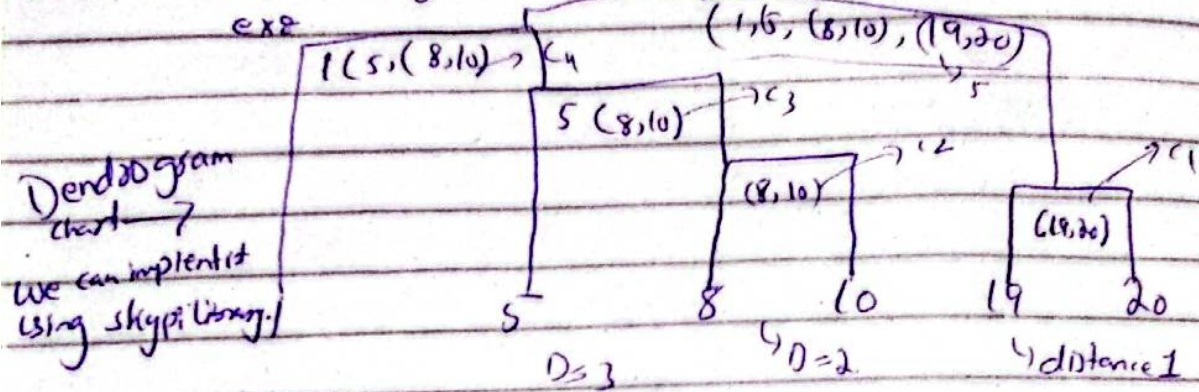 ex8
1(5,(8,10) → C4
(1,5,(8,10),(19,20)
5
5 (8,10) → C3
(8,10) → C2
→ C1
(19,20)
Dendrogram
chart →
we can implent it
using skypi library.
1
5
8
10
19
20
D=3
↳ D=2
↳ distance 1